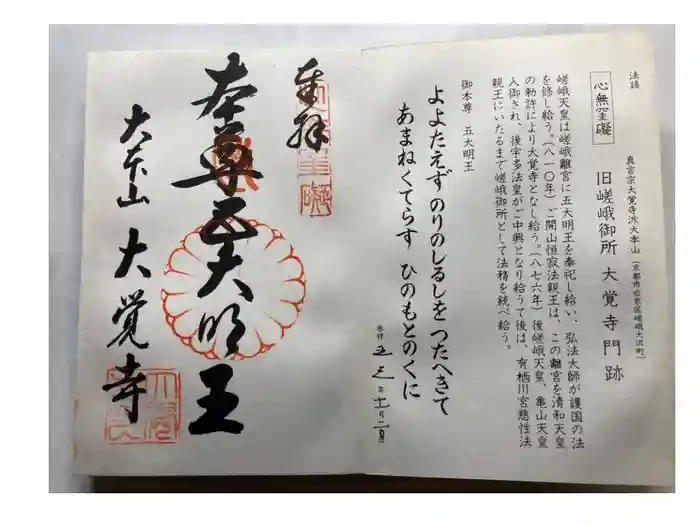 法語
心無罣礙
真言宗大覚寺派大本山(京都市右京区嵯峨大沢町)
旧嵯峨御所 大覚寺門跡
嵯峨天皇は嵯峨離宮に五大明王を奉祀し給い、弘法大師が護国の法
を修し給う。(八一〇年)ご開山恒寂法親王は、この離宮を清和天皇
の勅許により大覚寺となし給う。(八七六年)後嵯峨天皇、亀山天皇
入御され、後宇多法皇がご中興となり給うて後は、有栖川宮慈性法
親王にいたるまで嵯峨御所として法務を統べ給う。
御本尊 五大明王
よよたえず のりのしるしを つたへきて
あまねくてらす ひのもとのくに
奉拝
本尊五大明王
大本山 大覚寺